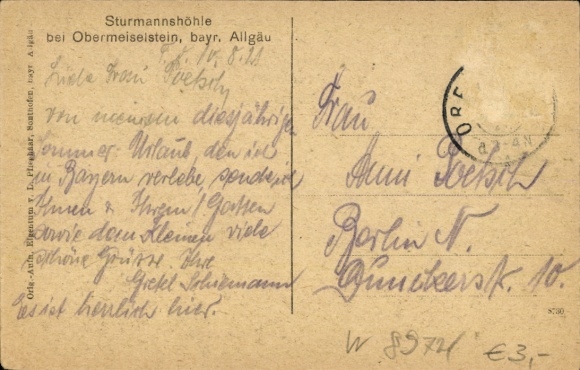 Sturmannshöhle
bei Obermeiselstein, bayr. Allgäu
Liebe Frau Poetsch
von meinem diesjährigen
Sommer-Urlaub, den ich
in Bayern verlebe, sende ich
Ihnen & Ihrem Gatten
sowie dem Kleinen viele
schöne Grüsse Ihre
Gretel Schiemann
Es ist herrlich hier.
Orig.-Aufn. Eigentum v. L. Fleghaar, Sonthofen, bayr. Allgäu
Frau
Anni Poetsch
Berlin N.
Dunckerstr. 10.
8730
W 8972
€3,-